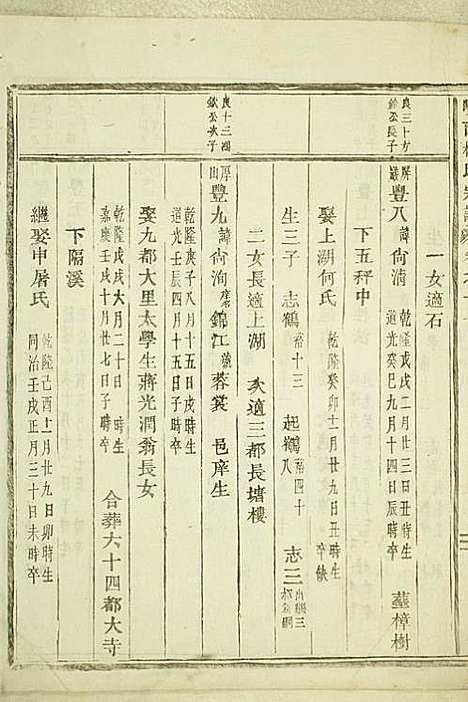 一女適石
良三十方
鈴公長子
屏巖豐八諱尙淸乾隆戊戌二月廿三日丑時生道光癸巳九月十四日辰時卒葬樟樹
下五秤中
娶上湖何氏乾隆癸卯十一月廿九日丑時生卒缺
生三子志鶴蒂十三起鶴蒂四十八志三
二女長適上湖次適三都長塘樓
良十三湖
欽公次子
厚山豐九諱尙洵字錦江號蓉裳邑庠生
乾隆庚子八月十五日戌時生
道光壬辰四月廿八日戌時卒
娶九都大里太學生蔣光潤翁長女
乾隆戊戌六月二十日時生
嘉慶壬戌十月廿七日子時卒合葬六十四都大寺
下隔溪
繼娶申屠氏乾隆己酉十一月廿九日卯時生同治壬戌正月三十日未時卒